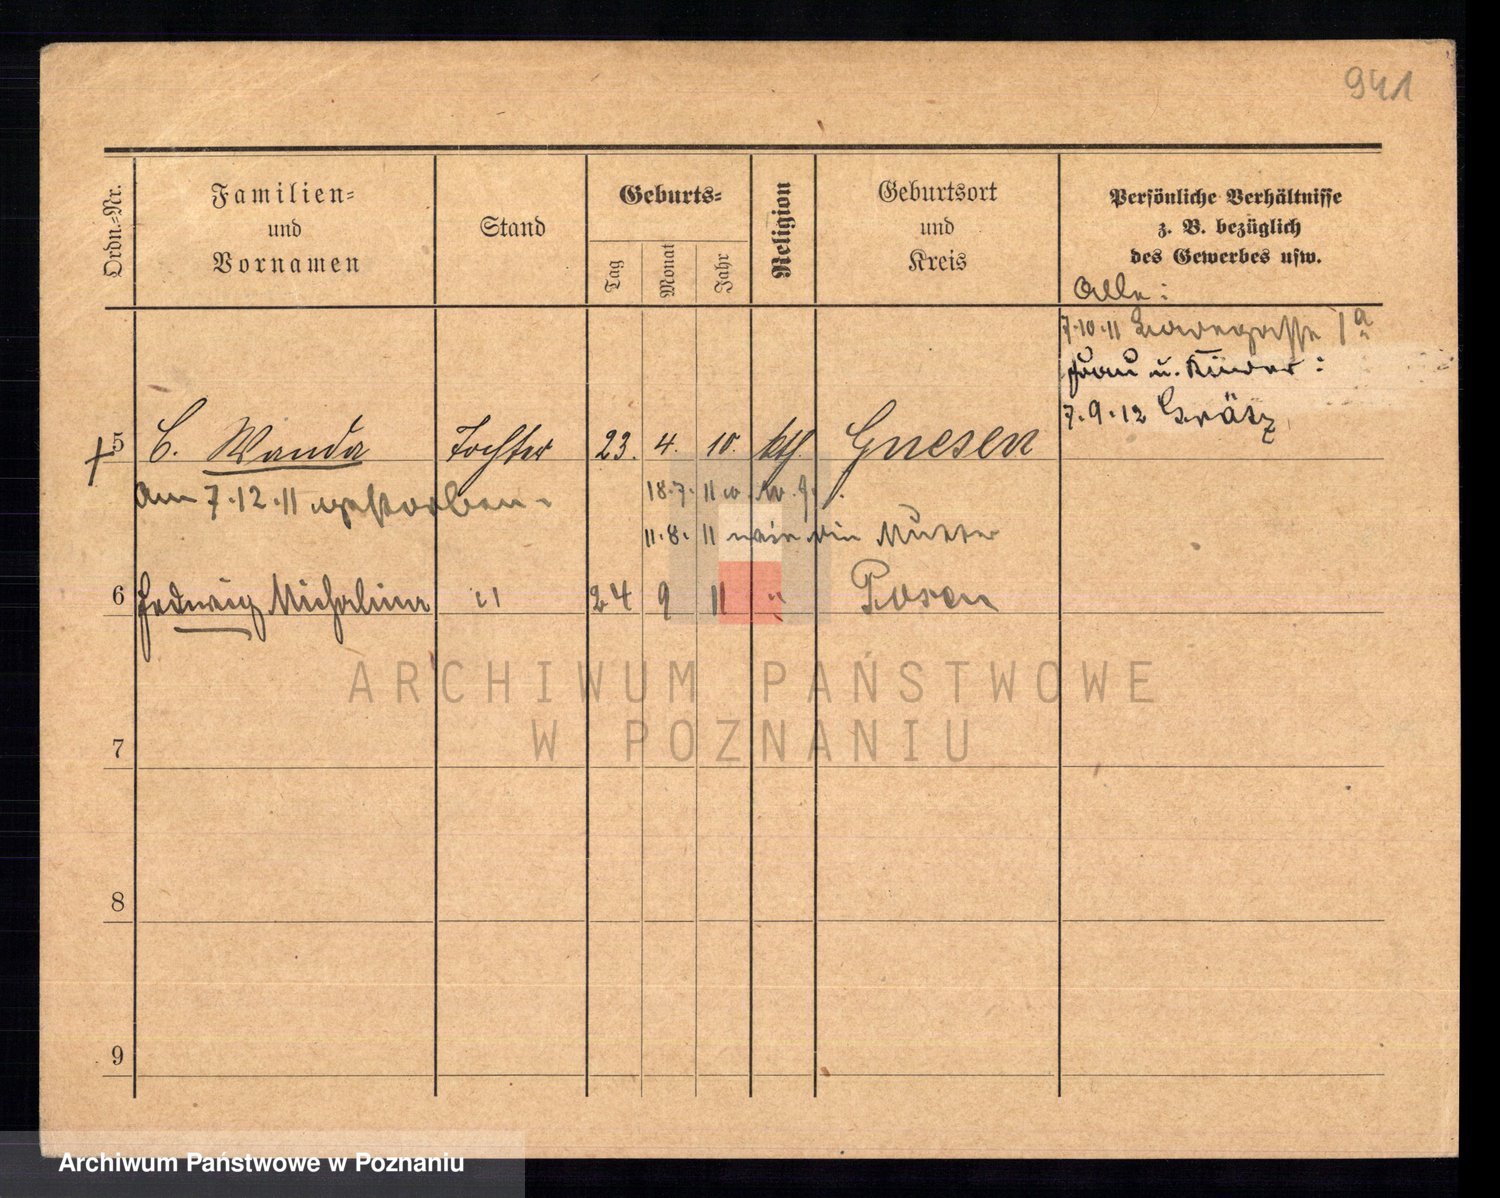 941
Ordn.-Nr.
Familien-
und
Vornamen
Stand
Geburts-
Tag
Monat
Jahr
Religion
Geburtsort
und
Kreis
Persönliche Verhältnisse
z. B. bezüglich
des Gewerbes usw.
Alle:
7.10.11 1a
Frau u. Kinder:
7.9.12 Grätz
5 C. Wanda Tochter 23. 4. 10. kth. Gnesen
am 7.12.11 gestorben.
18.7.11
11.8.11 Mutter
6 Hedwig Michalina " 24 9 11 " Posen
7
8
9
ARCHIWUM PAŃSTWOWE
W POZNANIU
Archiwum Państwowe w Poznaniu